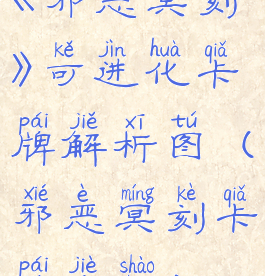 《邪恶冥刻
kě jìn huà qiǎ
》可进化卡
pái jiě xī tú
牌解析图（
xié è míng kè qiǎ
邪恶冥刻卡
pái jiè shào